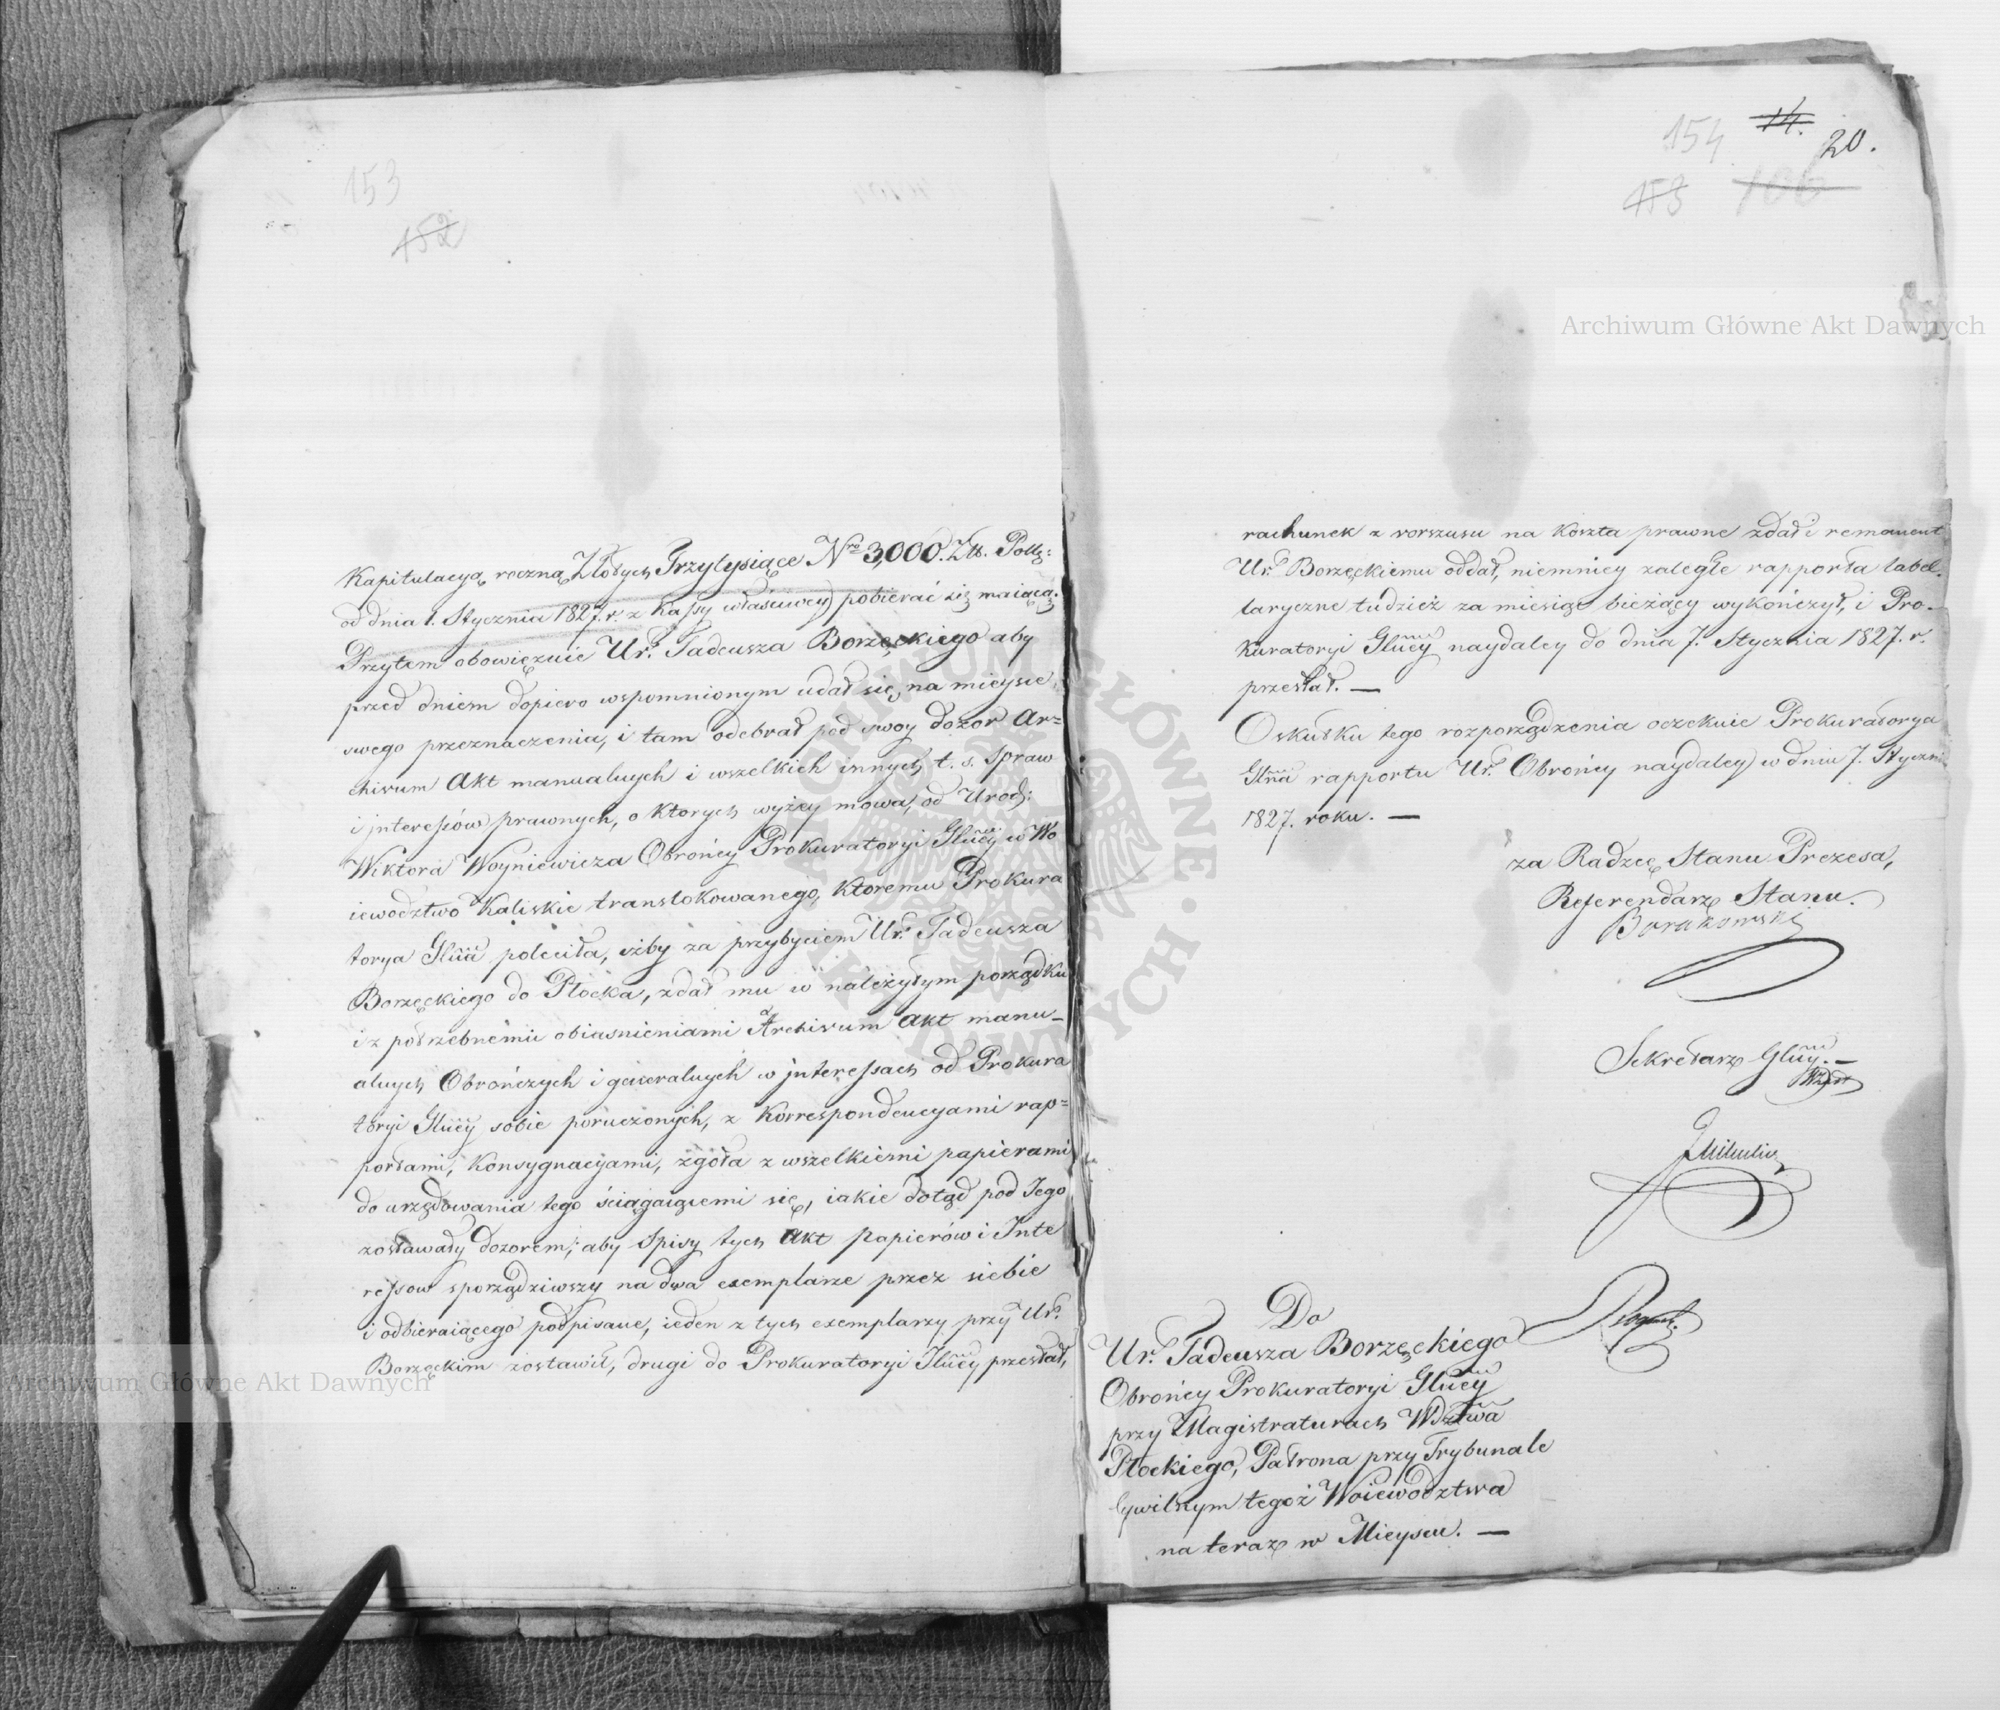 153
152
Kapitulacyą roczną Złotych Trzytysiące Nro 3,000. Złt. Polls:
od dnia 1. Stycznia 1827. r. z Kassy właściwey pobierać się maiącą.
Przytem obowięzuie Ur. Tadeusza Borzęckiego aby
przed dniem dopiero wspomnionym udał się, na mieysce
swego przeznaczenia, i tam odebrał pod swoy dozor Ar=
chiwum Akt manualnych i wszelkich innych t. s. Spraw
i jnteressów prawnych, o ktorych wyżey mowa, od Urodz:
Wiktora Woyniewicza Obrońcy Prokuratoryi Glney w Wo
iewodztwo Kaliskie translokowanego, ktoremu Prokura
torya Glna poleciła, iżby za przybyciem Ur. Tadeusza
Borzęckiego do Płocka, zdał mu w należytym porządku
i z potrzebnemi obiasnieniami Archiwum Akt manu-
alnych Obrończych i generalnych w jnteressach od Prokura
toryi Glney sobie poruczonych, z Korrespondencyami rap=
portami, Konsygnacyami, zgoła z wszelkiemi papierami
do urzędowania tego ściągaiącemi się, iakie dotąd pod Jego
zostawały dozorem; aby Spisy tych Akt Papierów i Inte
ressow sporządziwszy na dwa exemplarze przez siebie
i odbieraiącego podpisane, ieden z tych exemplarzy przy Ur.
Borzęckim zostawił, drugi do Prokuratoryi Glney przesłał,
154 14. 20.
153 100
rachunek z vorszusu na Koszta prawne zdał i remanent
Ur. Borzęckiemu oddał, niemniey zaległe rapporta tabel-
laryczne tudzież za miesiąc bieżący wykończył, i Pro-
kuratoryi Glney naydaley do dnia 7. Stycznia 1827. r.
przesłał. —
O skutku tego rozporządzenia oczekuie Prokuratorya
Glna rapportu Ur. Obrońcy naydaley w dniu 7. Styczni
1827. roku. —
za Radzcę Stanu Prezesa,
Referendarz Stanu.
Sekretarz Glny. —
Do
Ur. Tadeusza Borzęckiego
Obrońcy Prokuratoryi Glney
przy Magistraturach Wdztwa
Płockiego, Patrona przy Trybunale
Cywilnym tegoż Woiewodztwa
na teraz w Mieyscu. —
Archiwum Główne Akt Dawnych
Archiwum Główne Akt Dawnych
ARCHIWUM GŁÓWNE · AKT DAWNYCH ·